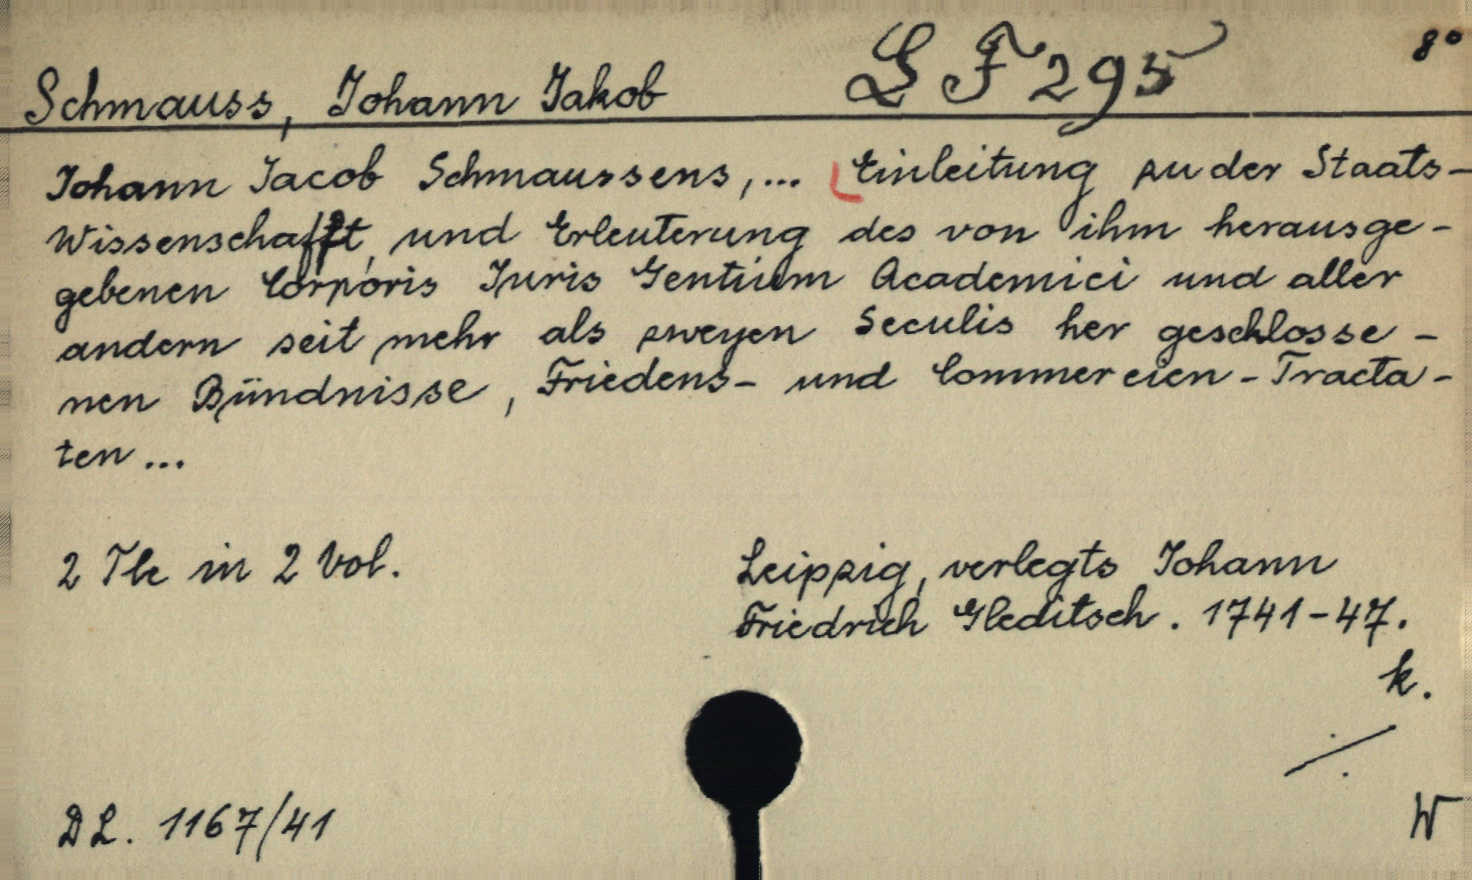 Schmauss, Johann Jakob
LF 295
8°
Johann Jacob Schmaussens, ... Einleitung zu der Staats-
Wissenschafft, und Erleuterung des von ihm herausge-
gebenen Corporis Juris Gentium Academici und aller
andern seit mehr als zweyen Seculis her geschlosse-
nen Bündnisse, Friedens- und Commercien-Tracta-
ten ...
2 Tle in 2 Vol.
Leipzig, verlegts Johann
Friedrich Gleditsch. 1741-47.
k.
DL. 1167/41
W